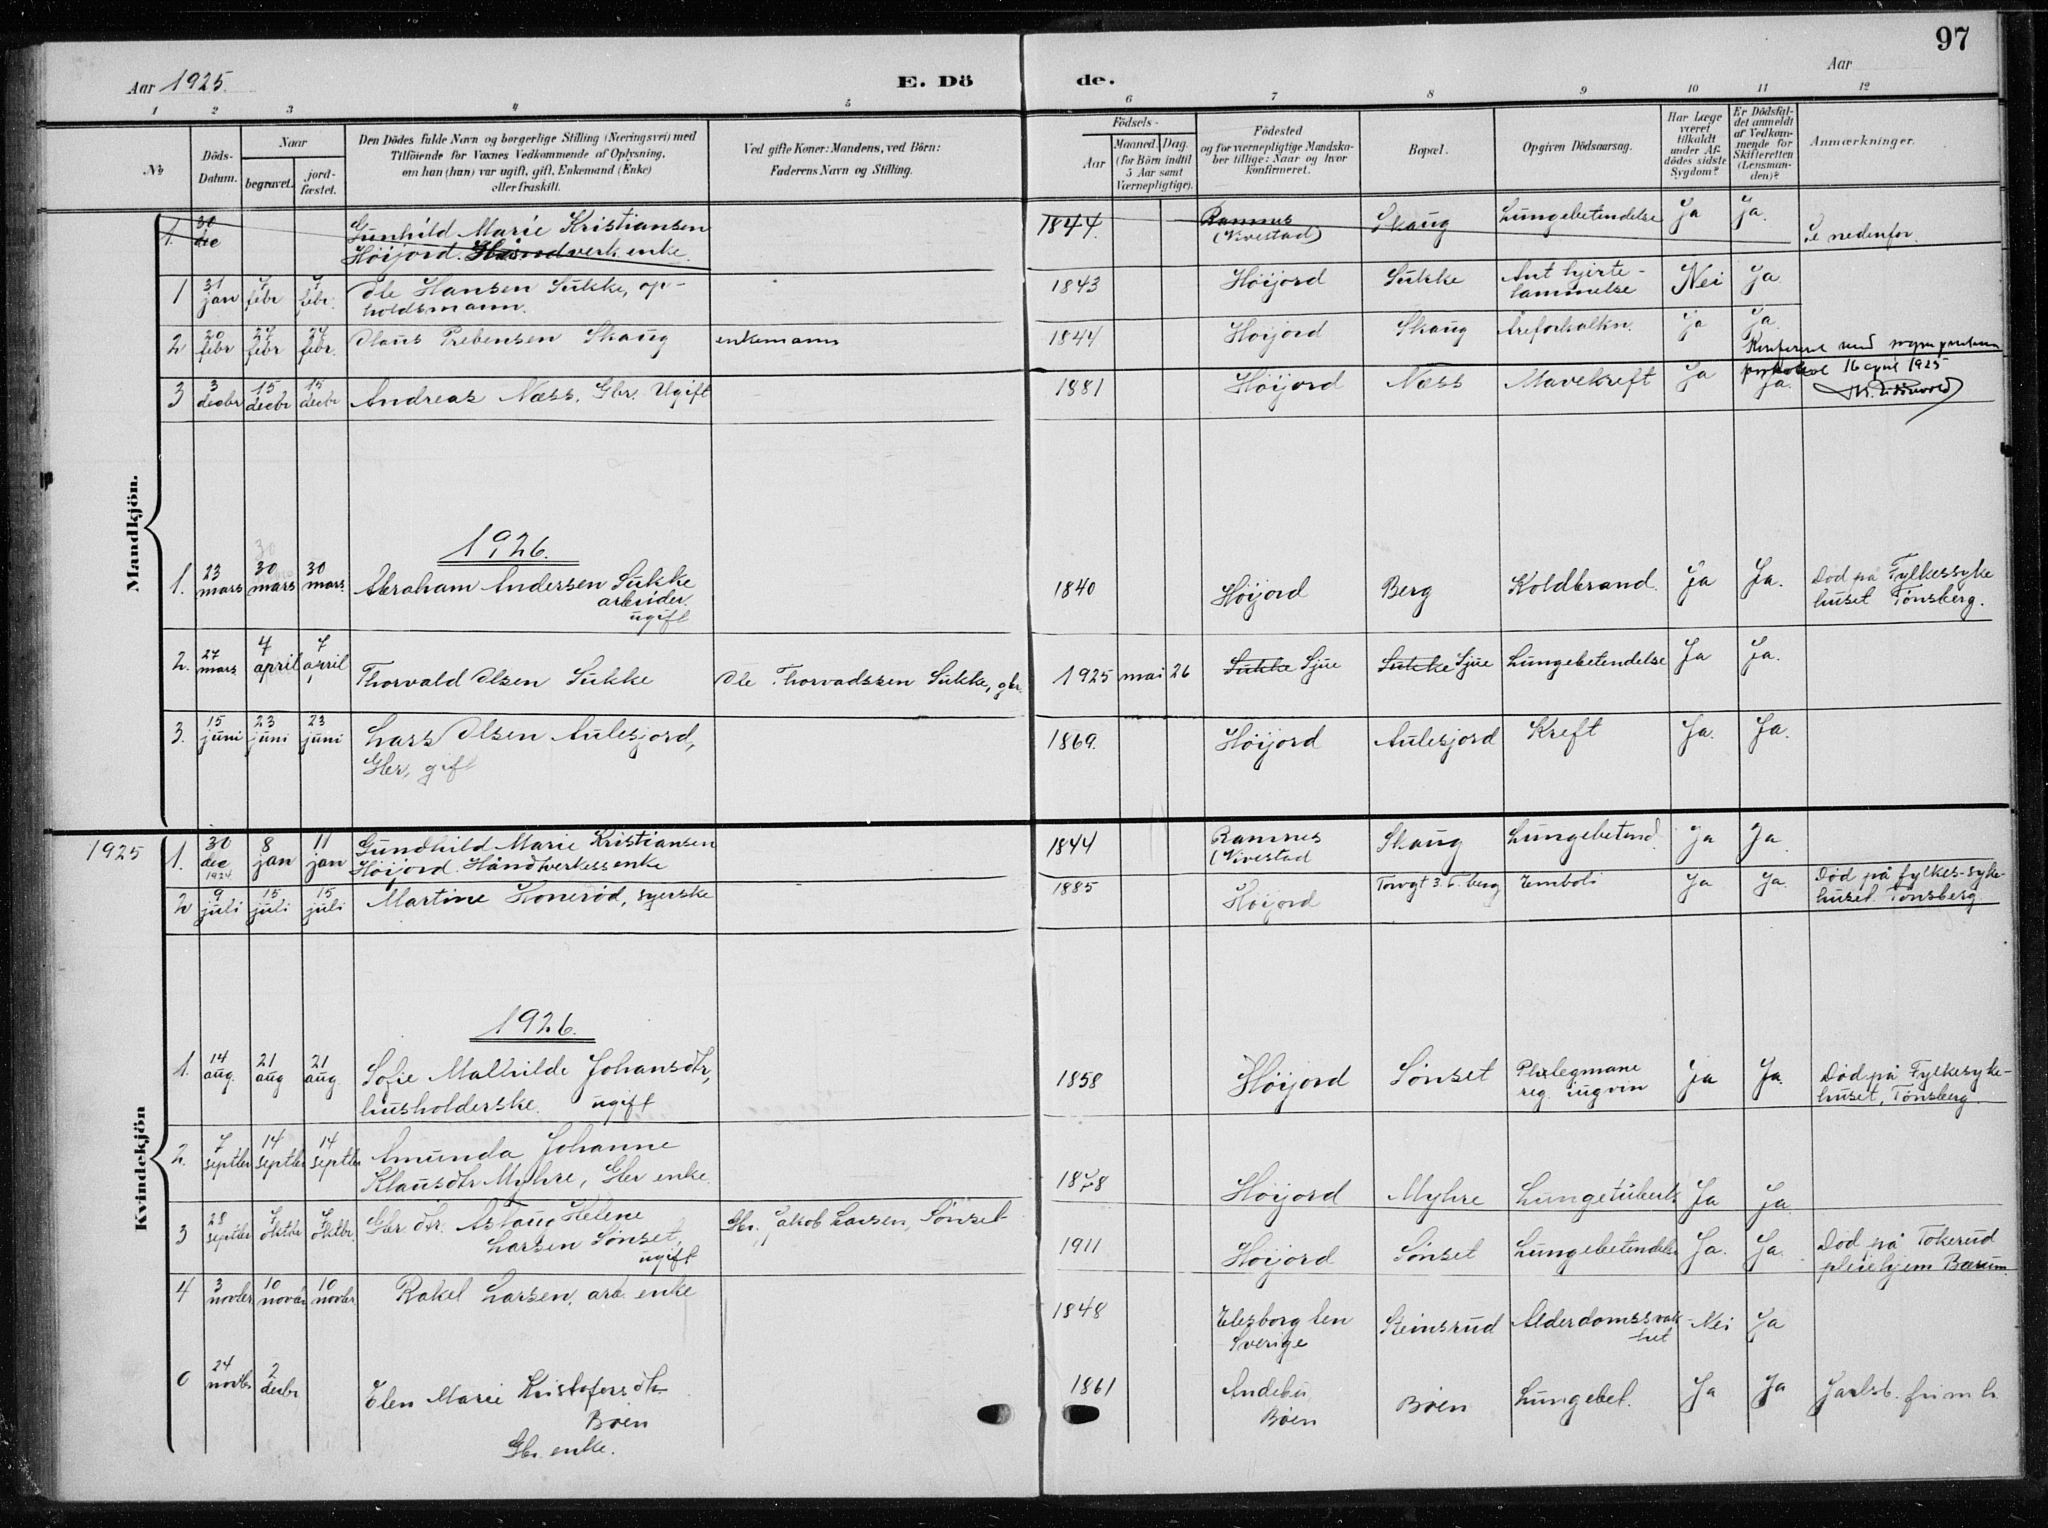 97
Aar 1925.
E. Dö de.
Aar
1 2 3 4 5 6 7 8 9 10 11 12
No
Döds-Datum.
Naar
begravet.
jord-fæstet.
Den Dödes fulde Navn og borgerlige Stilling (Næringsvei) med
Tilföiende for Voxnes Vedkommende af Oplysning,
om han (hun) var ugift, gift, Enkemand (Enke)
eller fraskilt.
Ved gifte Koner: Mandens, ved Börn:
Faderens Navn og Stilling.
Födsels-
Aar
Maaned. Dag.
(for Börn indtil
5 Aar samt
Værnepligtige).
Födested
og for værnepligtige Mandska-
ber tillige: Naar og hvor
konfirmeret.
Bopæl.
Opgiven Dödsaarsag.
Har Læge
været
tilkaldt
under Af-
dödes sidste
Sygdom?
Er Dödsfal-
det anmeldt
af Vedkom-
mende for
Skifteretten
(Lensman-
den)?
Anmærkninger.
Mandkjön.
1. 30 dec Gunhild Marie Kristiansen 1844. Ramnes (Kivestad) Skaug Lungebetendelse Ja Ja. Se nedenfor.
Høijord. Håndverk. enke.
1 31 jan 7 febr 7 febr. Ole Hansen Sukke, op- 1843 Høijord Sukke Ant hjerte- Nei Ja.
holdsmann. lammelse
2 20 febr 24 febr 24 febr. Claus Prebensen Skaug enkemann 1844 Høijord Skaug Åreforkalkn. Ja Ja.
Konfereret med
16 april 1925
3 3 decbr 15 decbr 15 decbr Andreas Næss. Gbr. Ugift 1881 Høijord Næss Mavekreft Ja Ja.
1926.
30
1. 23 mars 30 mars 30 mars. Abraham Andersen Sukke 1840 Høijord Berg Koldbrand. Ja Ja. Død på Fylkessyke
arbeider. huset Tønsberg.
ugift
2. 27 mars. 7 april 7 april Thorvald Olsen Sukke Ole Thorvadssen Sukke, gbr. 1925 mai 26 Sukke Sjue Sukke Sjue Lungebetendelse Ja Ja.
3. 15 juni 23 juni 23 juni Lars Olsen Aulesjord, 1869. Høijord Aulesjord Kreft Ja. Ja.
Gbr, gift
Kvindekjön
1925 1. 30 dec 1924. 8 jan 11 jan Gundhild Marie Kristiansen 1844 Ramnes Skaug Lungebetend. Ja Ja.
Høijord. Håndverkessenke (Kivestad
2 9 juli 15 juli 15 juli Martine Honerød, syerske 1885 Høijord Torvgt 3. T.berg Emboli Ja Ja. Død på fylkes-syke-
huset. Tønsberg
1926.
1. 14 aug. 21 aug 21 aug. Sofie Mathilde Johansdtr, 1858 Høijord Sønset Phlegmane Ja Ja. Død på Fylkesyke-
husholderske. ugift reg. iugvin huset, Tønsberg.
2. 7 septbr 14 septbr 14 septbr Amunda Johanne
Klausdtr Myhre, Gbr enke. 1878 Høijord Myhre Lungetuberk. Ja Ja
3 28 septbr 7 oktbr 7 oktbr. Gbr. dtr. Aslaug Helene Gbr. Jakob Larsen, Sønset
Larsen Sønset, 1911 Høijord Sønset Lungebetendelse Ja. Ja. Død på Tokerud
ugift pleiehjem Bærum.
4 3 novbr 10 novbr 10 novbr. Rakel Larsen. arb. enke 1848 Elesborg len Steinsrud Alderdomssvak- Nei Ja
Sverige het
0 24 novbr 2 decbr Elen Marie Kristofersdtr 1861 Andebu, Bøen Lungebet. Ja Ja Jarlsb. frimh.
Bøen Bøen
Gbr. enke.